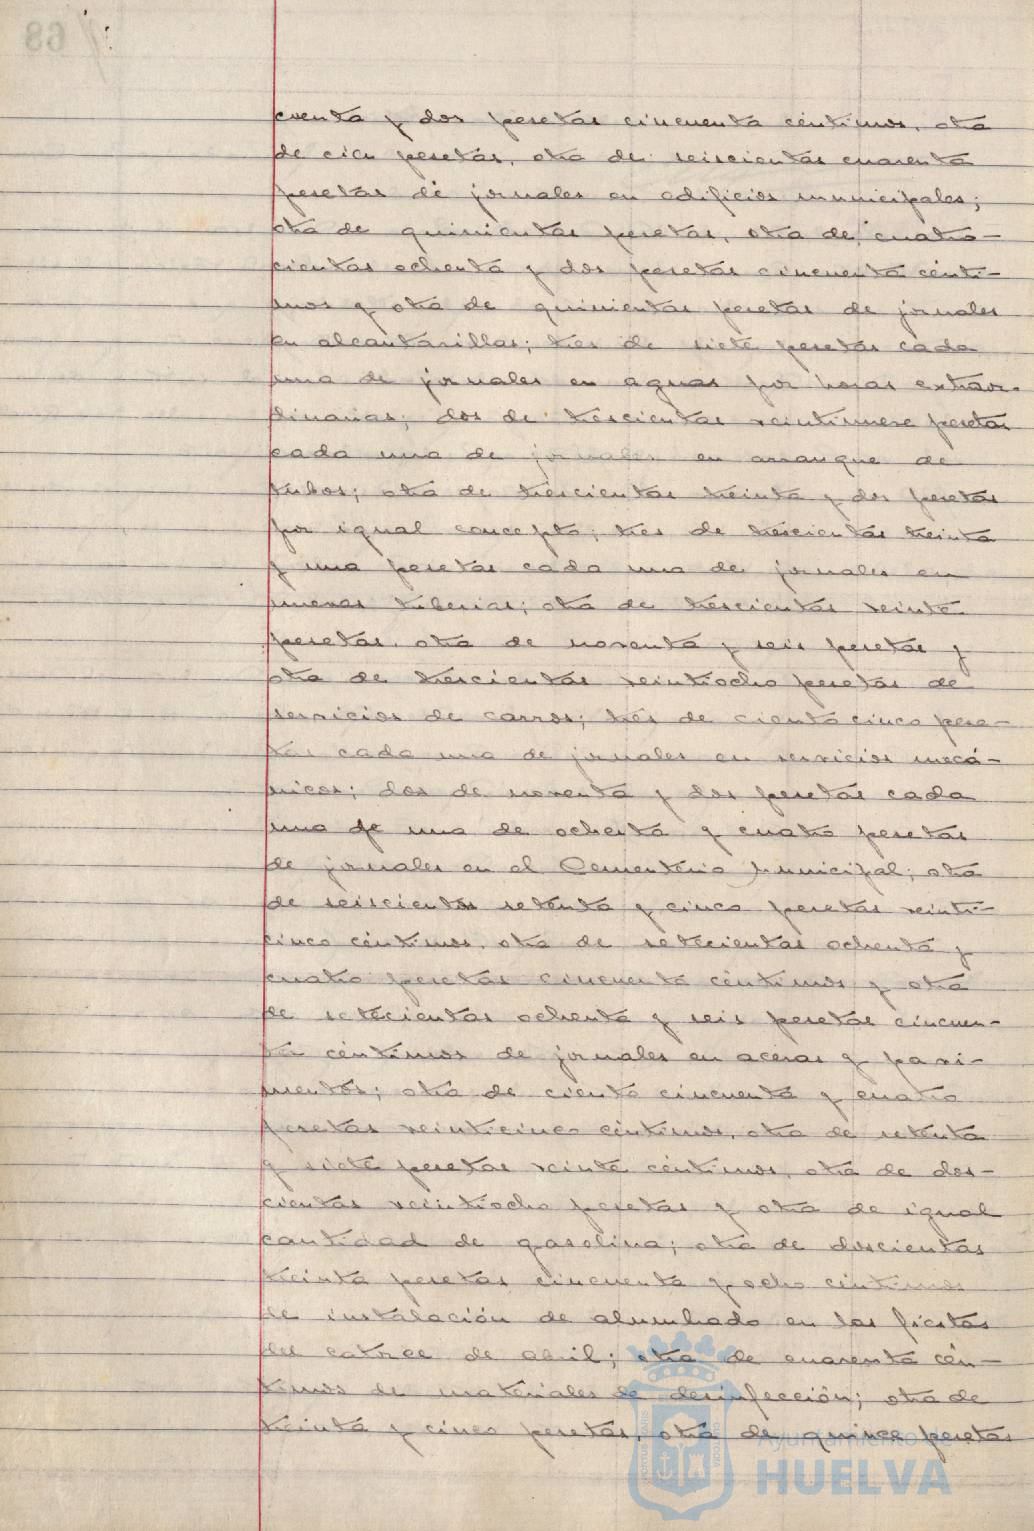 cuenta y dos pesetas cincuenta céntimos, otra
de cien pesetas, otra de seiscientas cuarenta
pesetas de jornales en edificios municipales;
otra de quinientas pesetas, otra de cuatro-
cientas ochenta y dos pesetas cincuenta cénti-
mos y otra de quinientas pesetas de jornales
en alcantarillas; tres de siete pesetas cada
una de jornales en aguas por horas extraor-
dinarias; dos de trescientas veintinueve pesetas
cada una de jornales en arranque de
tubos; otra de trescientas treinta y dos pesetas
por igual concepto; tres de trescientas treinta
y una pesetas cada una de jornales en
nuevas tuberias; otra de trescientas veinte
pesetas, otra de noventa y seis pesetas y
otra de trescientas veintiocho pesetas de
servicios de carros; tres de ciento cinco pese-
tas cada una de jornales en servicios mecá-
nicos; dos de noventa y dos pesetas cada
una y una de ochenta y cuatro pesetas
de jornales en el Cementerio Municipal; otra
de seiscientas setenta y cinco pesetas veinti-
cinco céntimos, otra de setecientas ochenta y
cuatro pesetas cincuenta céntimos y otra
de setecientas ochenta y seis pesetas cincuen-
ta céntimos de jornales en aceras y pavi-
mentos; otra de ciento cincuenta y cuatro
pesetas veinticinco céntimos, otra de setenta
y siete pesetas veinte céntimos, otra de dos-
cientas veintiocho pesetas y otra de igual
cantidad de gasolina; otra de doscientas
treinta pesetas cincuenta y ocho céntimos
de instalación de alumbrado en las fiestas
del catorce de abril; otra de cuarenta cén-
timos de materiales de desinfección; otra de
treinta y cinco pesetas, otra de quince pesetas
Ayuntamiento de
HUELVA